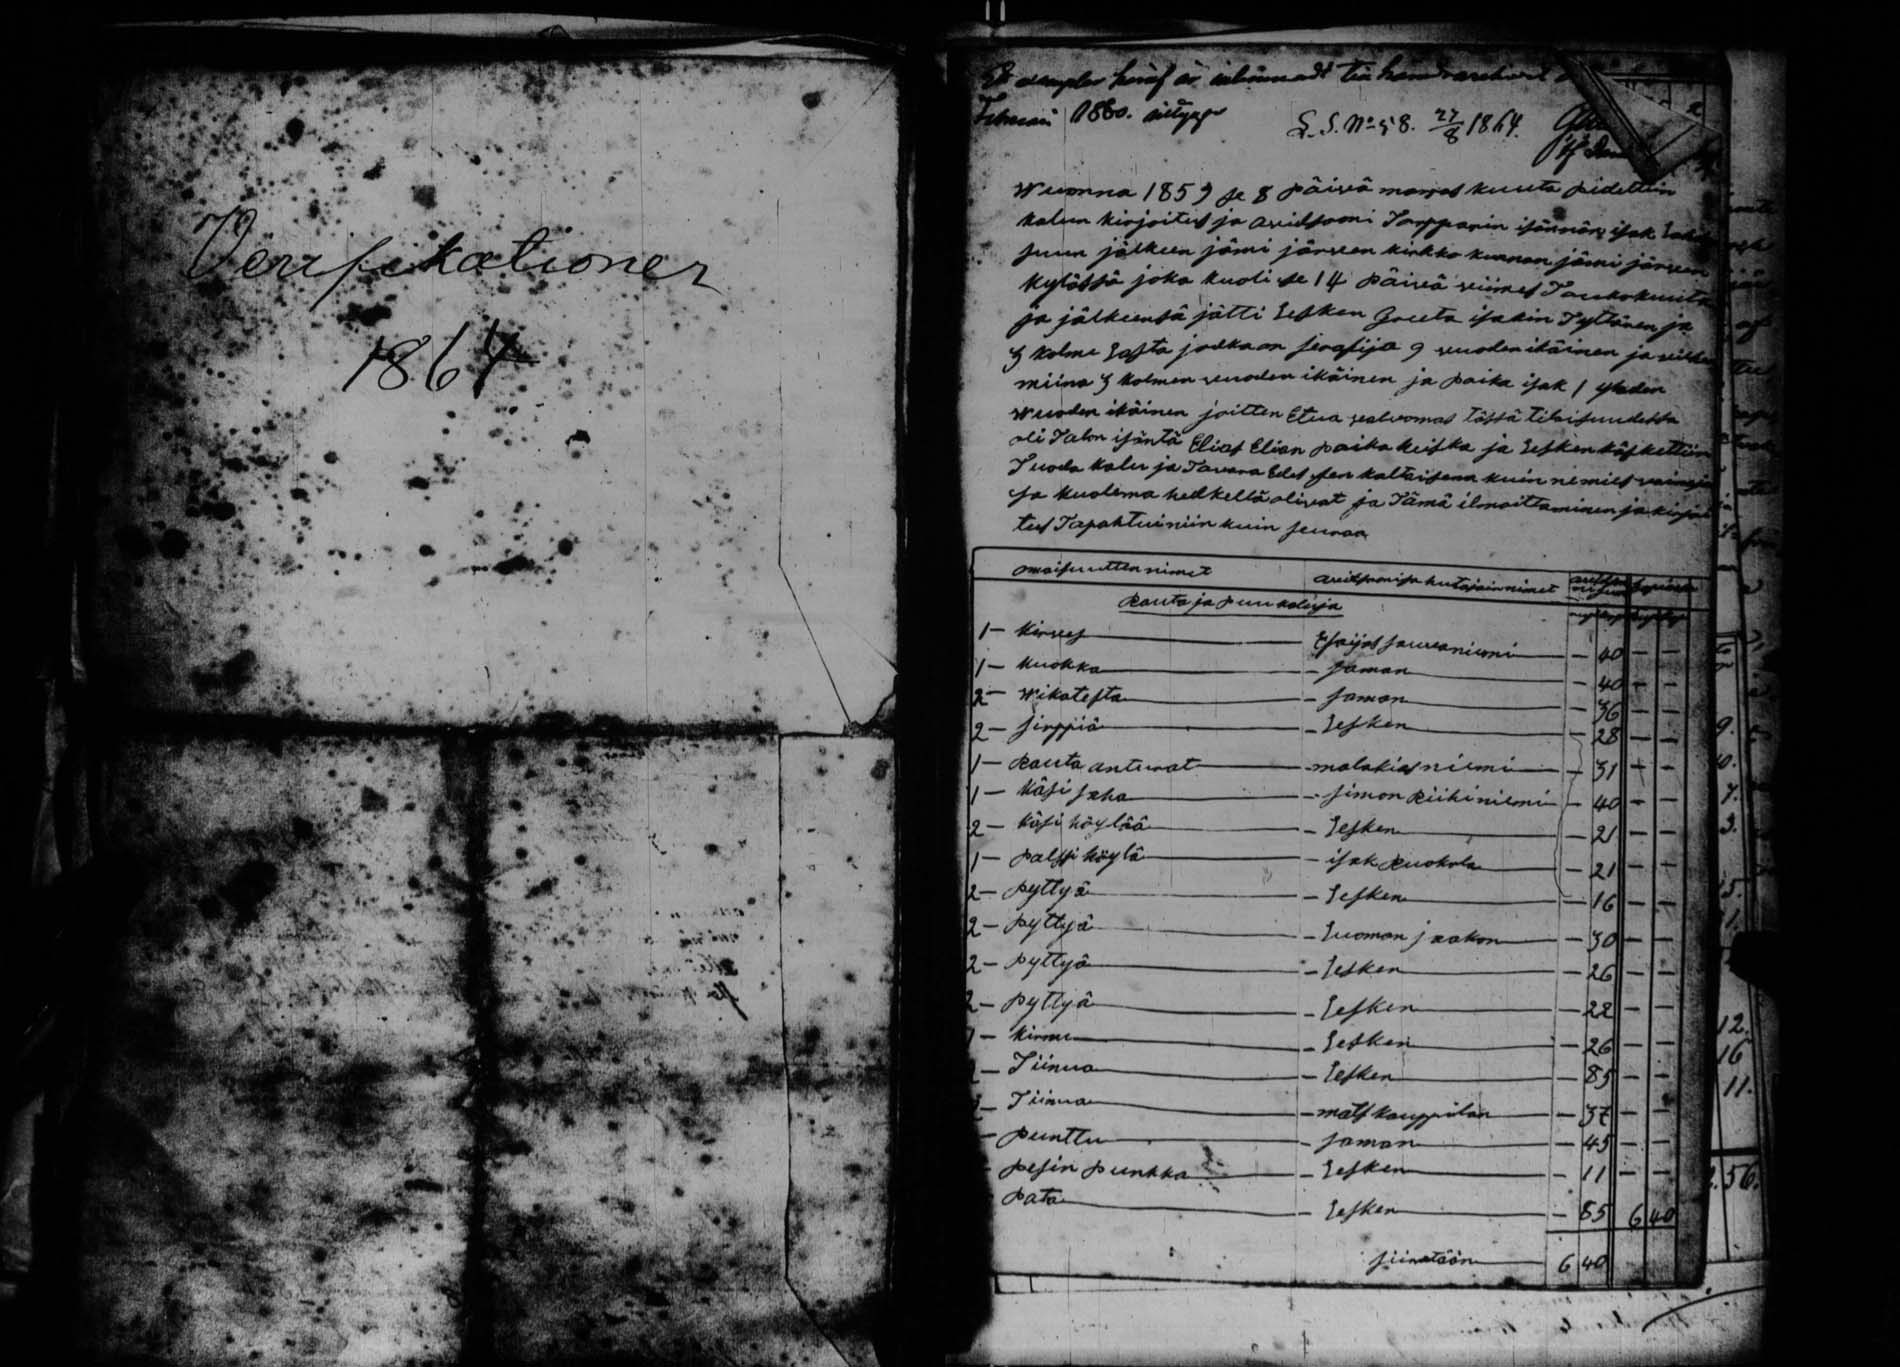 Verifikationer
1864
Exemplar häraf är inlämnadt till häradsarkivet
Februari 1860. intygar
L. S. No 58. 27/8 1864.
Wuonna 1859 se 8 päivä marras kuuta pidettiin
kalun kirjoitus ja avitsooni Torpparin isännän isak
juun jälkeen jämi järven kirkko kunnan jämi järven
kylässä joka kuoli se 14 päivä viimes Toukokuuta
ja jälkeensä jätti Lesken Greeta isakin Tyttären ja
3 kolme Lasta jotka on serafija 9 vuoden ikäinen ja vilhel
miina 3 kolmen vuoden ikäinen ja poika isak 1 yhden
Wuoden ikäinen joitten Etua valvomas tässä tilaisuudessa
oli Talon isäntä Elias Elian poika keiska ja Lesken käskettiin
Tuoda kalu ja Tavara Edes sen kaltaisena kuin ne mies vainajan
ja kuolema hetkellä olivat ja Tämä ilmoittaminen ja kirjoi
tus Tapahtui niin kuin seuraa
omaisuutten nimet avitsoonissa hutajain nimet
Rauta ja puu kaluja
1 — kirves — Esaijas sauvaniemi — 40 — —
1 — kuokka — saman — 40 — —
2 — wikatesta — saman — 36 — —
2 — sirppiä — Lesken — 28 — —
1 — Rauta anturat — malakias niemi — 31 — —
1 — käsi saha — simon Riihiniemi — 40 — —
2 — käsi höylää — Lesken — 21 — —
1 — palssi höylä — isak Ruokola — 21 — —
2 — pyttyä — Lesken — 16 — —
2 — pyttyä — Luoman jaakon — 30 — —
2 — pyttyä — Lesken — 26 — —
2 — pyttyä — Lesken — 22 — —
1 — kirnu — Lesken — 26 — —
Tiinua — Lesken — 85 — —
Tiinua — mats kauppilan — 37 — —
— punttu — saman — 45 — —
pesin punkka — Lesken — 11 — —
pata — Lesken — 85 6 40
siiretään — 6 40
9.
7.
3.
12.
16
11.
56.